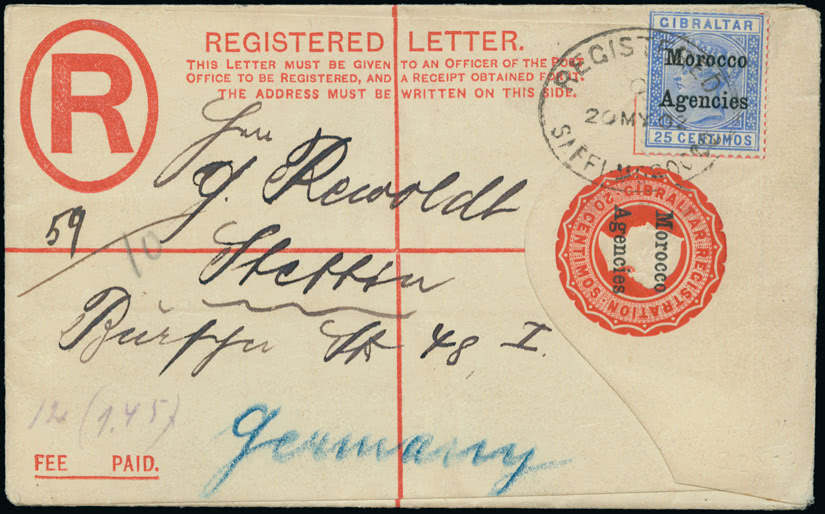 R
REGISTERED LETTER.
THIS LETTER MUST BE GIVEN TO AN OFFICER OF THE POST
OFFICE TO BE REGISTERED, AND A RECEIPT OBTAINED FOR IT.
THE ADDRESS MUST BE WRITTEN ON THIS SIDE.
GIBRALTAR
Morocco
Agencies
25 CENTIMOS
REGISTERED
20 MY
SAFFI
Herrn
J. Rewoldt
59
10
Stettin
48 I.
GIBRALTAR REGISTRATION
20 CENTIMOS
Morocco
Agencies
(1.45)
Germany
FEE PAID.